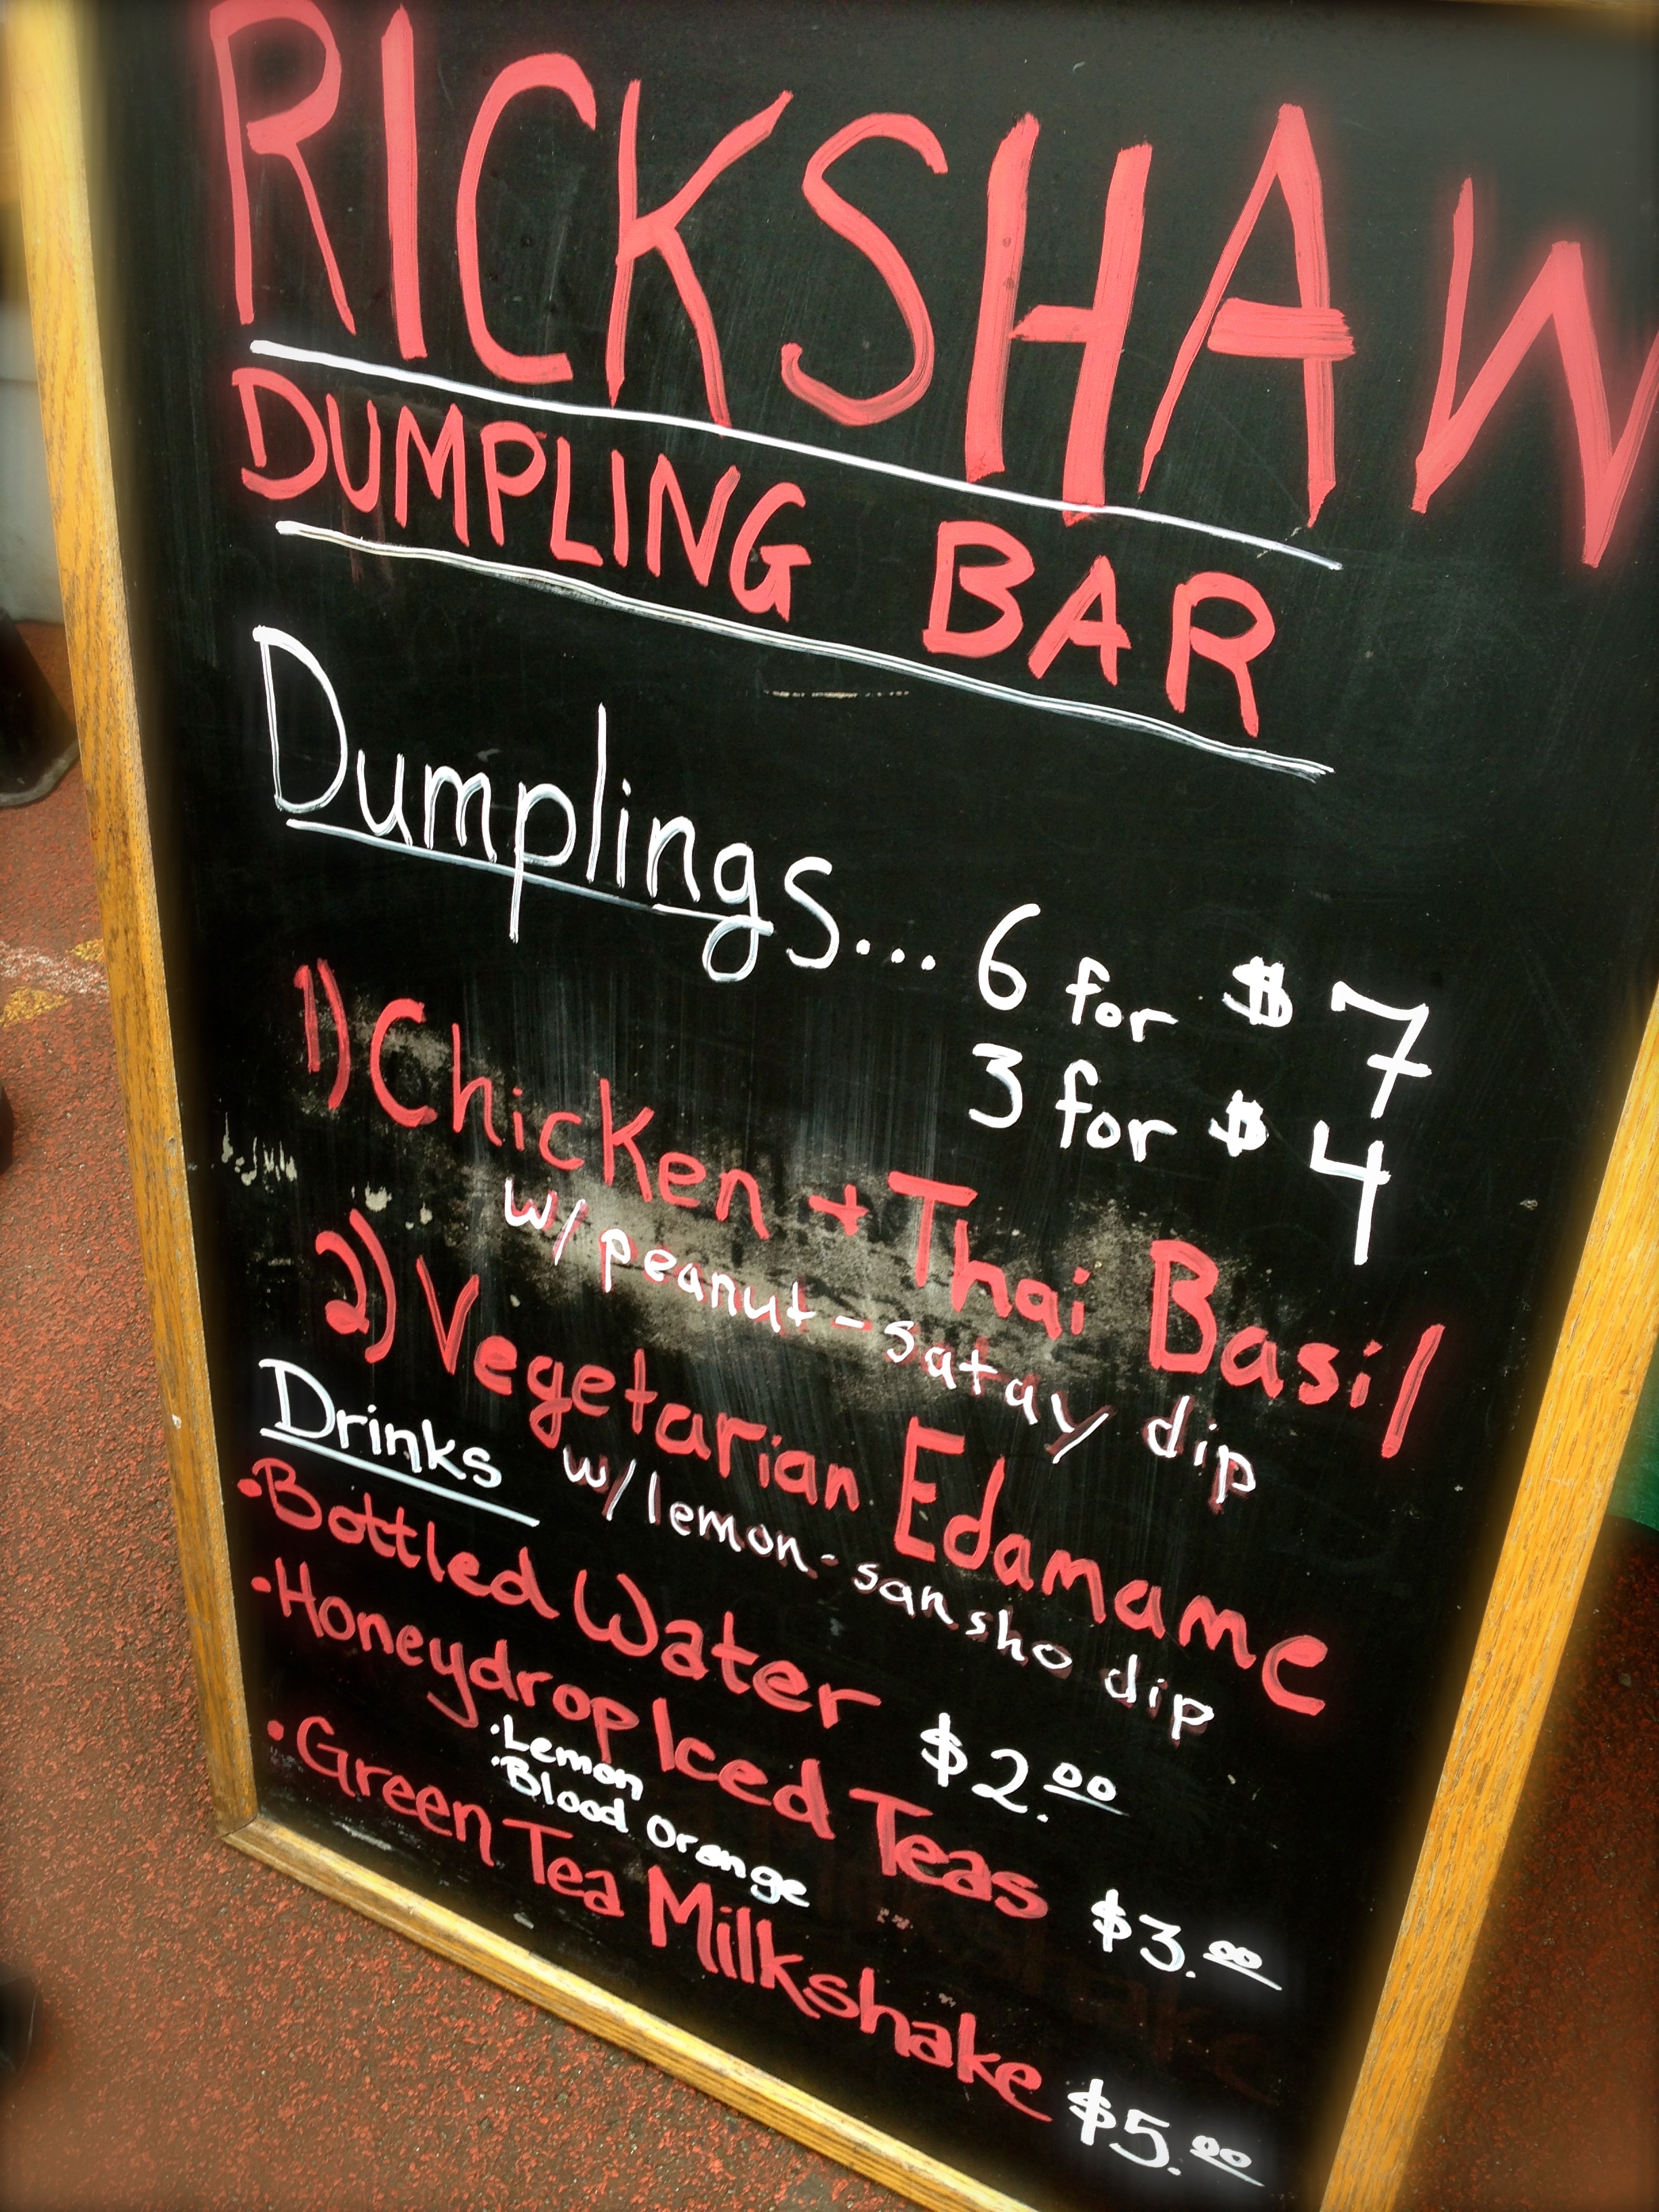 RICKSHAW
DUMPLING BAR
Dumplings... 6 for $7
3 for $4
1) Chicken + Thai Basil
w/ peanut-satay dip
2) Vegetarian Edamame
w/ lemon-sansho dip
Drinks
• Bottled Water $2.00
• Honeydrop Iced Teas $3.00
• Lemon
• Blood Orange
• Green Tea Milkshake $5.00